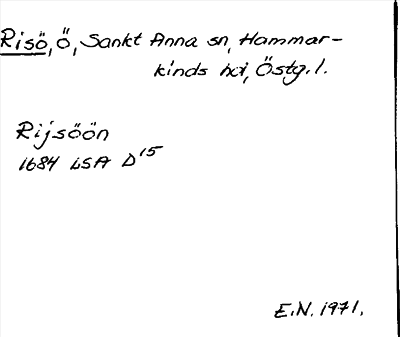 Risö, Ö, Sankt Anna sn, Hammar-
kinds hd, Östg. l.
Rijsöön
1684 LSA D15
E.N. 1971.